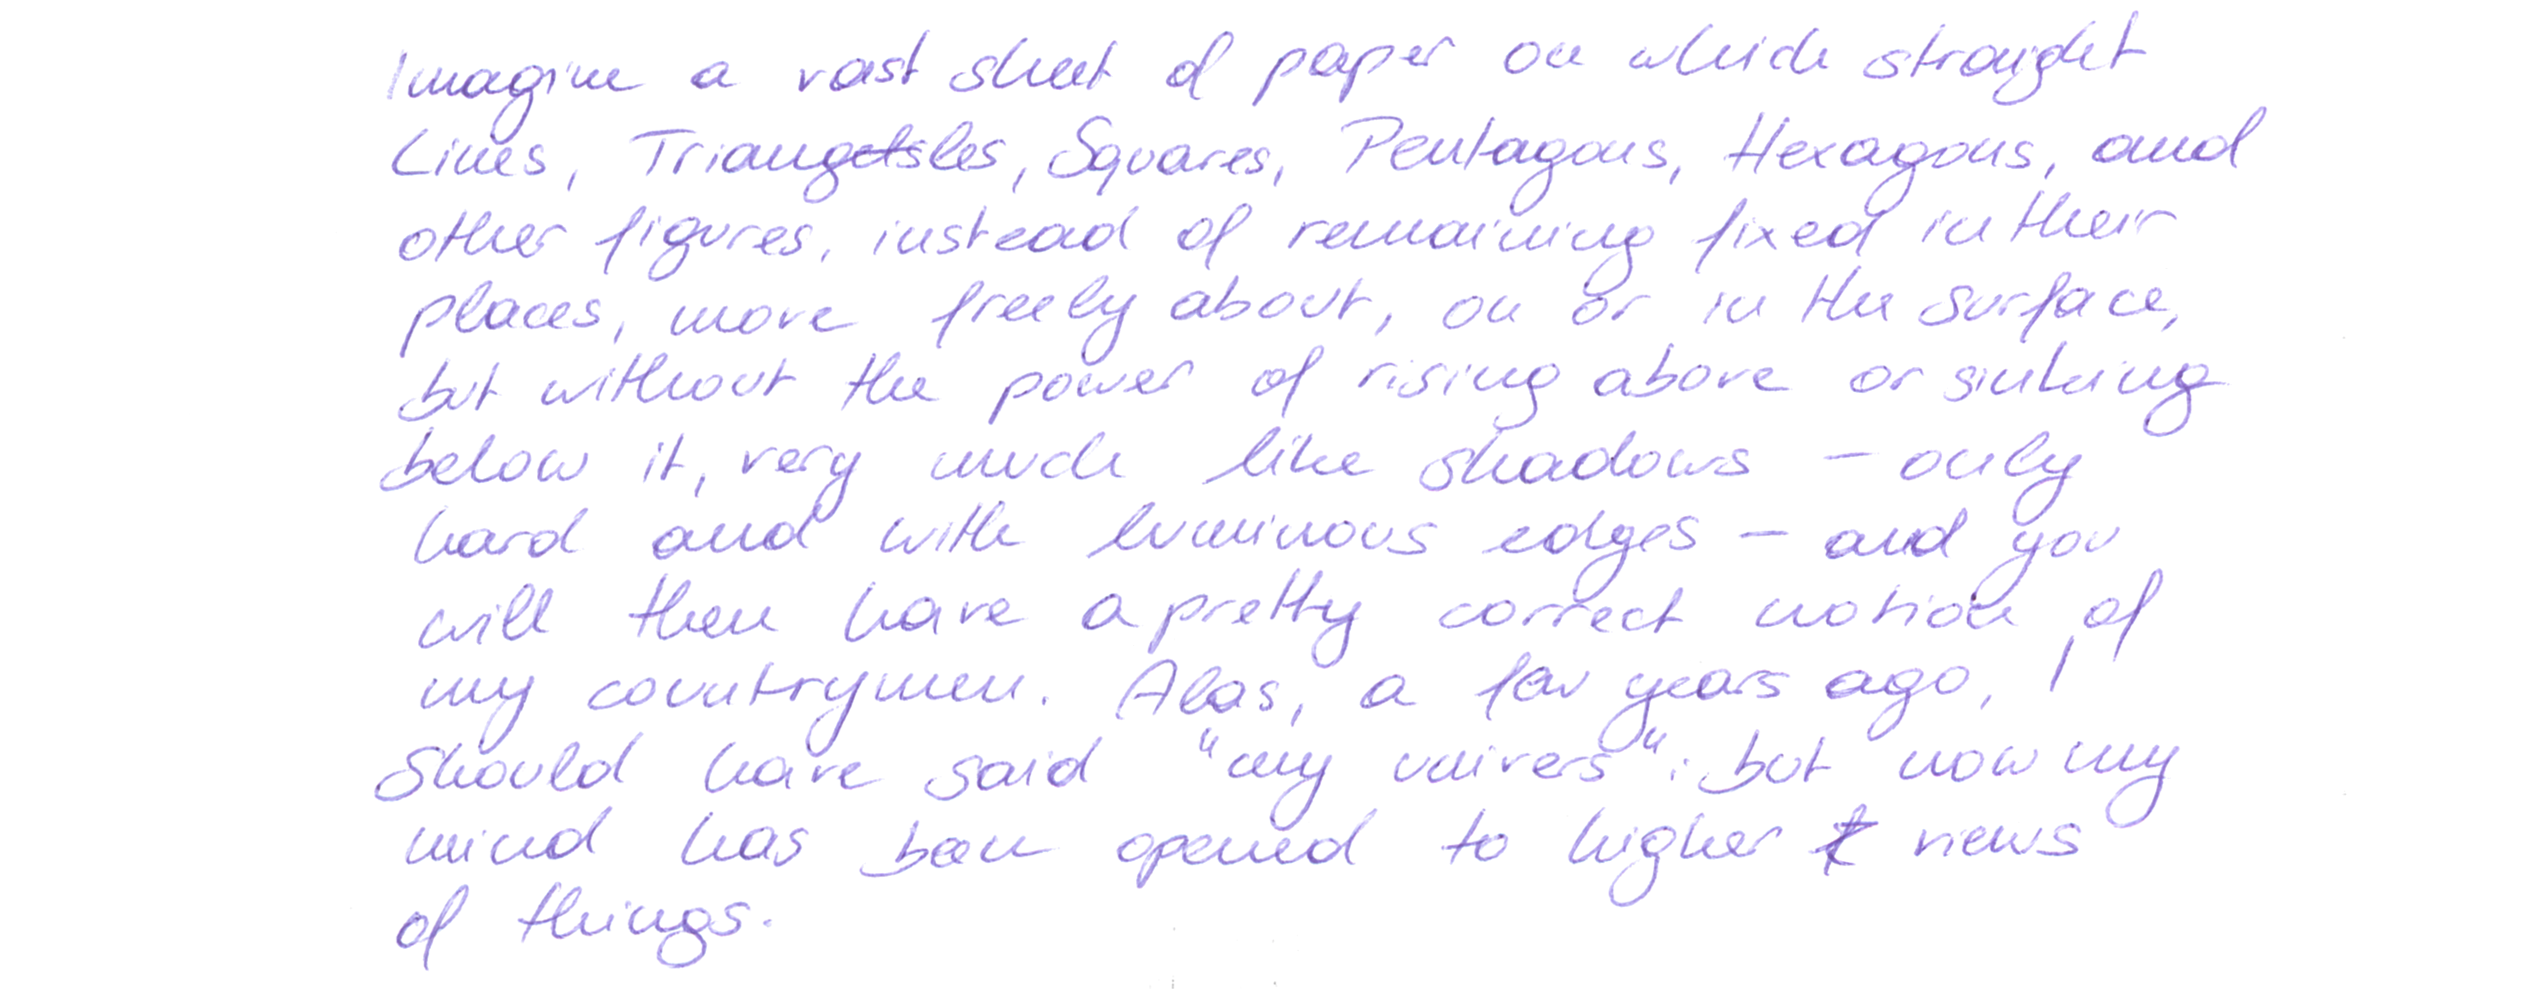 Imagine a vast sheet of paper on which straight
Lines, Triangles, Squares, Pentagons, Hexagons, and
other figures, instead of remaining fixed in their
places, move freely about, on or in the surface,
but without the power of rising above or sinking
below it, very much like shadows – only
hard and with luminous edges – and you
will then have a pretty correct notion of
my countrymen. Alas, a few years ago, I
should have said "my univers": but now my
mind has been opened to higher views
of things.